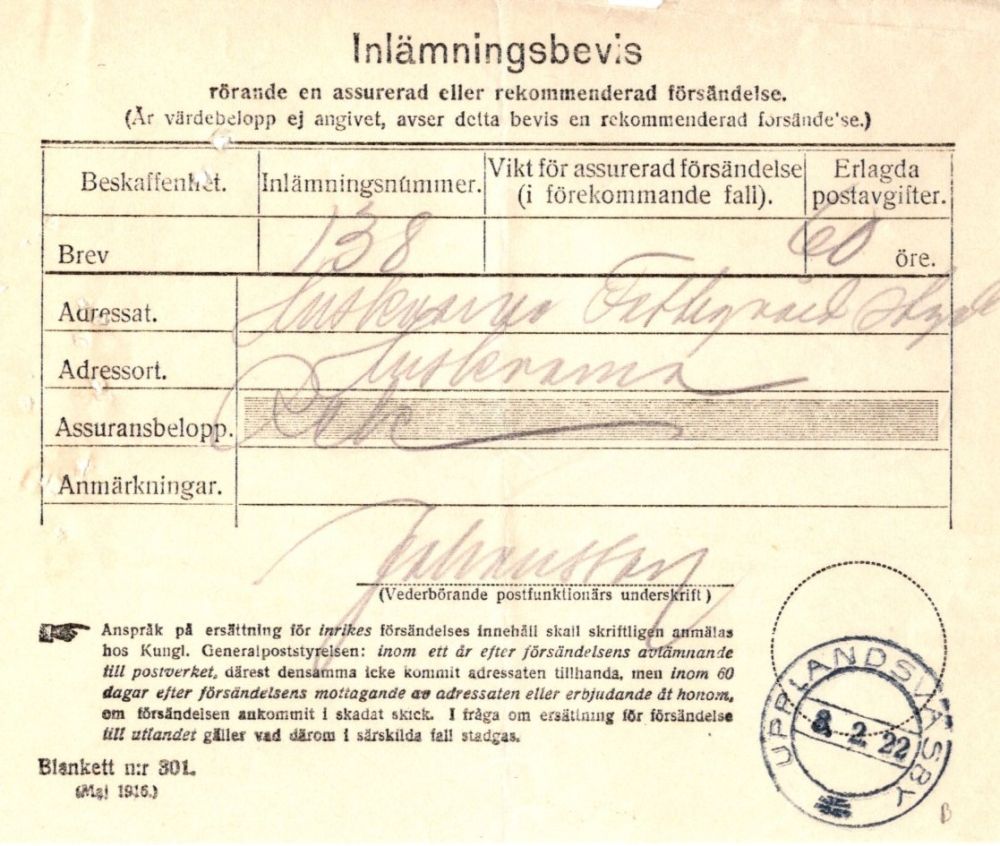 Inlämningsbevis
rörande en assurerad eller rekommenderad försändelse.
(Är värdebelopp ej angivet, avser detta bevis en rekommenderad försändelse.)
Beskaffenhet. Inlämningsnummer. Vikt för assurerad försändelse (i förekommande fall). Erlagda postavgifter.
Brev 138 60 öre.
Adressat.
Adressort.
Assuransbelopp.
Anmärkningar.
Johansson
(Vederbörande postfunktionärs underskrift)
Anspråk på ersättning för inrikes försändelses innehåll skall skriftligen anmälas
hos Kungl. Generalpoststyrelsen: inom ett år efter försändelsens avlämnande
till postverket, därest densamma icke kommit adressaten tillhanda, men inom 60
dagar efter försändelsens mottagande av adressaten eller erbjudande åt honom,
om försändelsen ankommit i skadat skick. I fråga om ersättning för försändelse
till utlandet gäller vad därom i särskilda fall stadgas.
Blankett n:r 301.
(Maj 1916.)
UPPLANDSVÄSBY
8. 2. 22
B